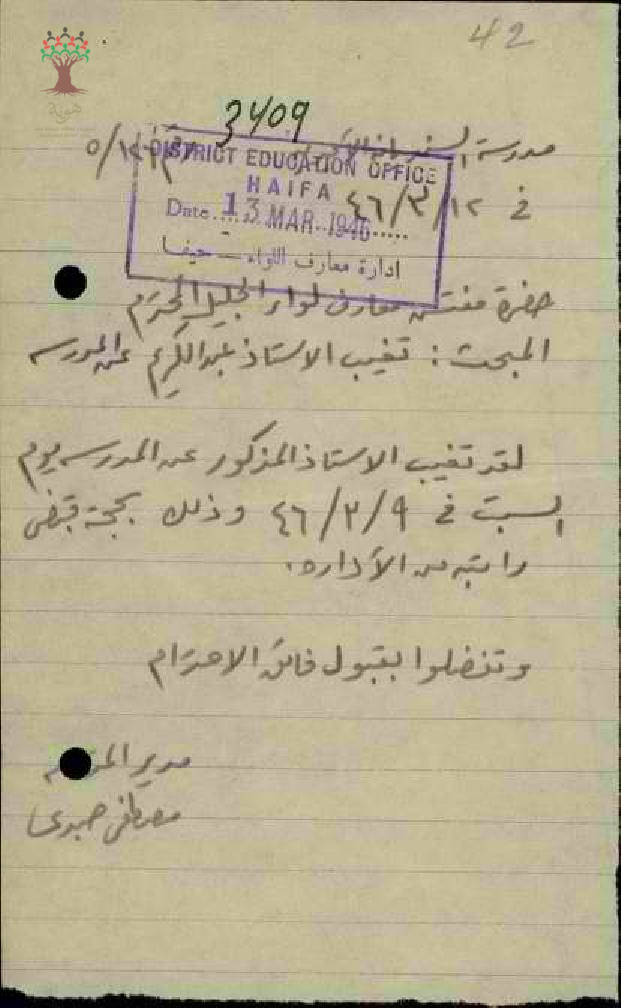 42
هوية
3409
مدرسة
DISTRICT EDUCATION OFFICE
HAIFA
Date 13 MAR 1946
ادارة معارف اللواء — حيفا
في ١٢/٣/٤٦
حضرة مفتش معارف لواء الجليل المحترم
المبحث : تغيب الاستاذ عبد الكريم عن المدرسه
لقد تغيب الاستاذ المذكور عن المدرسه يوم
السبت في ٩/٣/٤٦ وذلك بحجة قبض
راتبه من الأداره.
وتفضلوا بقبول فائق الاحترام
مدير
مصطفى